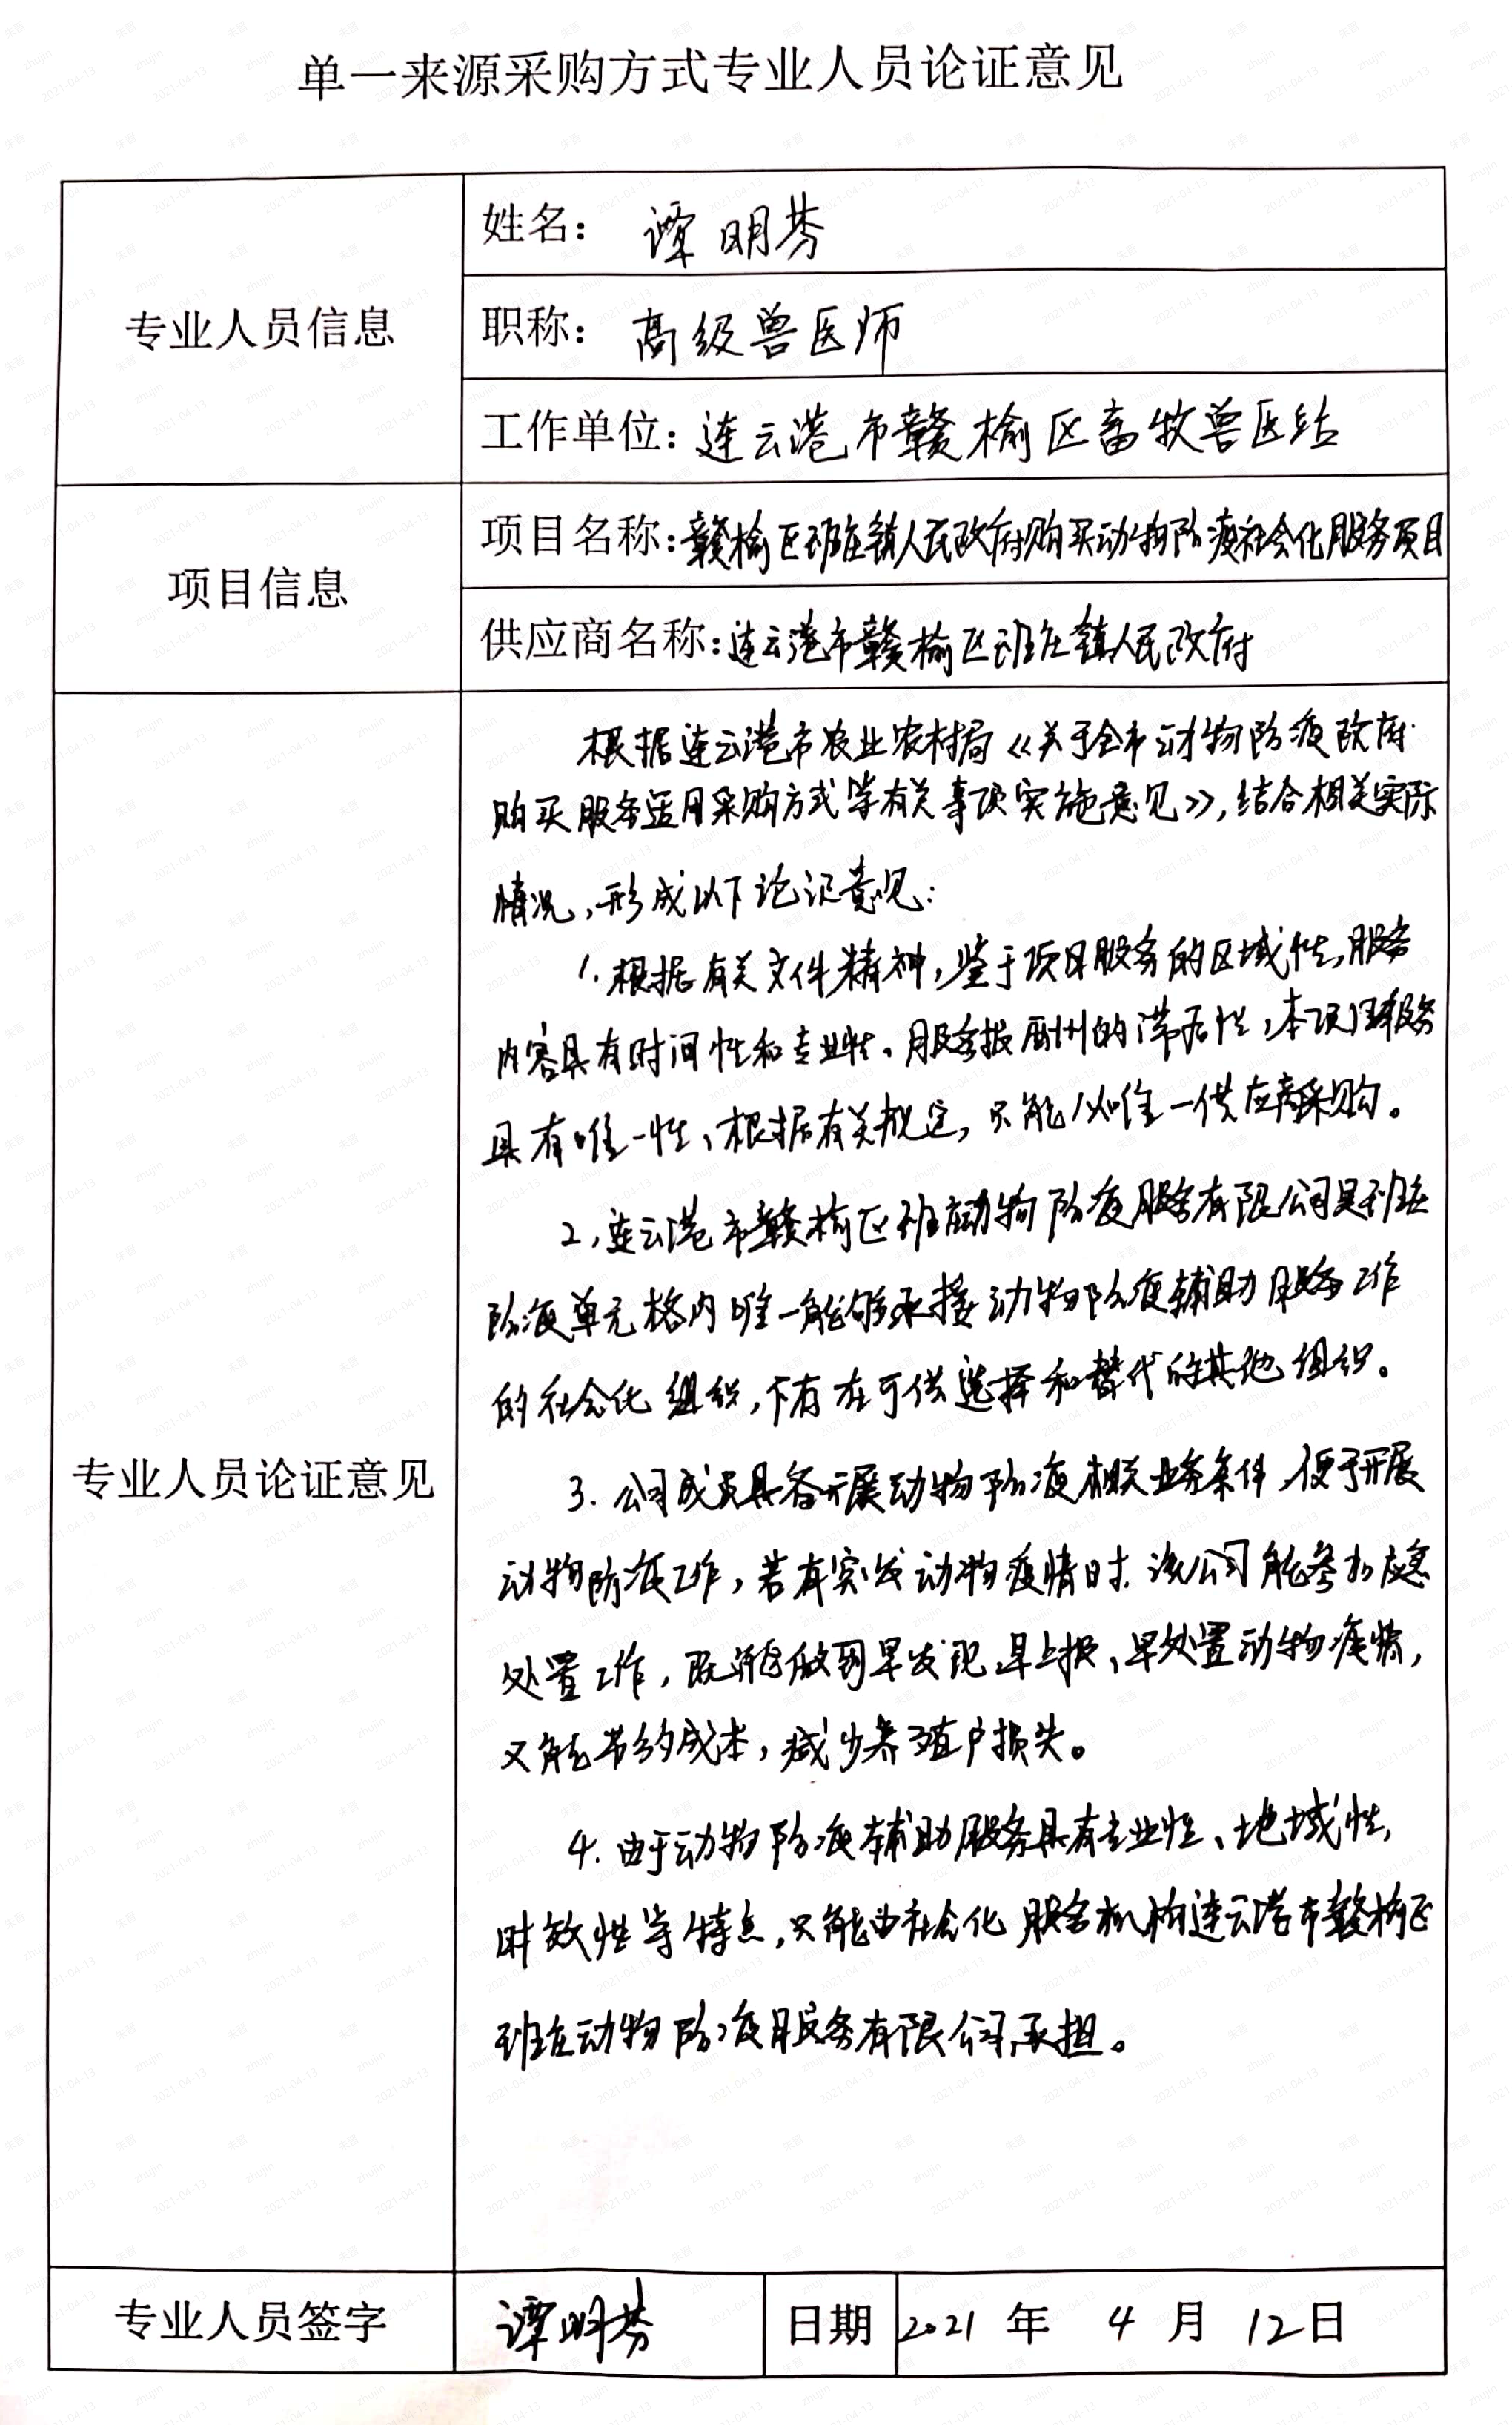 单一来源采购方式专业人员论证意见
专业人员信息
姓名： 谭明芬
职称： 高级兽医师
工作单位：连云港市赣榆区畜牧兽医站
项目信息
项目名称：赣榆区班庄镇人民政府购买动物防疫社会化服务项目
供应商名称：连云港市赣榆区班庄镇人民政府
专业人员论证意见
根据连云港市农业农村局《关于全市动物防疫政府
购买服务适用采购方式等有关事项实施意见》，结合相关实际
情况，形成以下论证意见：
1.根据有关文件精神，鉴于项目服务的区域性，服务
内容具有时间性和专业性、服务报酬的滞后性，本项目服务
具有唯一性、根据有关规定，只能从唯一供应商采购。
2，连云港市赣榆区班庄动物防疫服务有限公司是班庄
防疫单元格内唯一能够承接动物防疫辅助服务工作
的社会化组织，不存在可供选择和替代的其他组织。
3.公司成员具备开展动物防疫相关业务条件，便于开展
动物防疫工作，若有突发动物疫情时.该公司能参加应急
处置工作，既能做到早发现、早上报、早处置动物疫情，
又能节约成本，减少养殖户损失。
4.由于动物防疫辅助服务具有专业性、地域性，
时效性等特点，只能由社会化服务机构连云港市赣榆区
班庄动物防疫服务有限公司承担。
专业人员签字 谭明芬 日期 2021 年 4 月 12日
朱晋
zhujin
2021-04-13